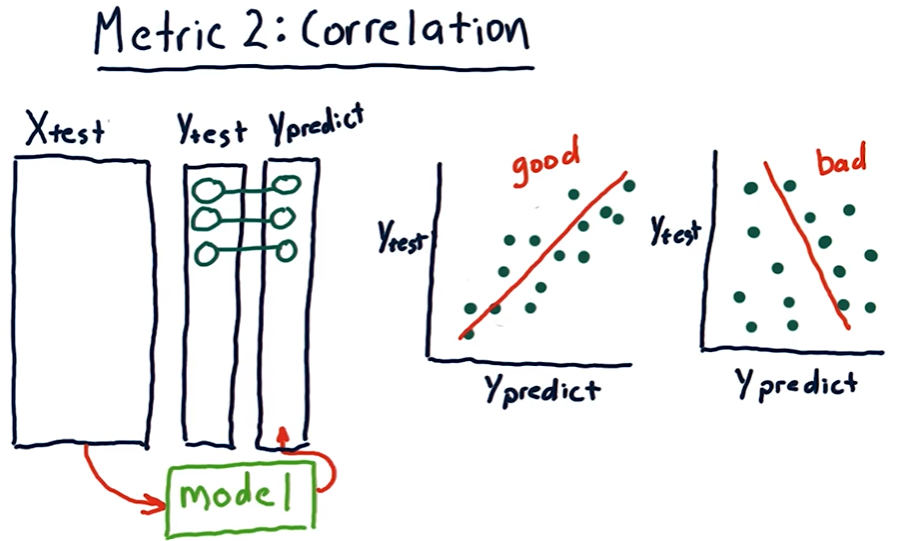 Metric 2: Correlation
Xtest
Ytest
Ypredict
model
good
Ytest
Ypredict
bad
Ytest
Ypredict